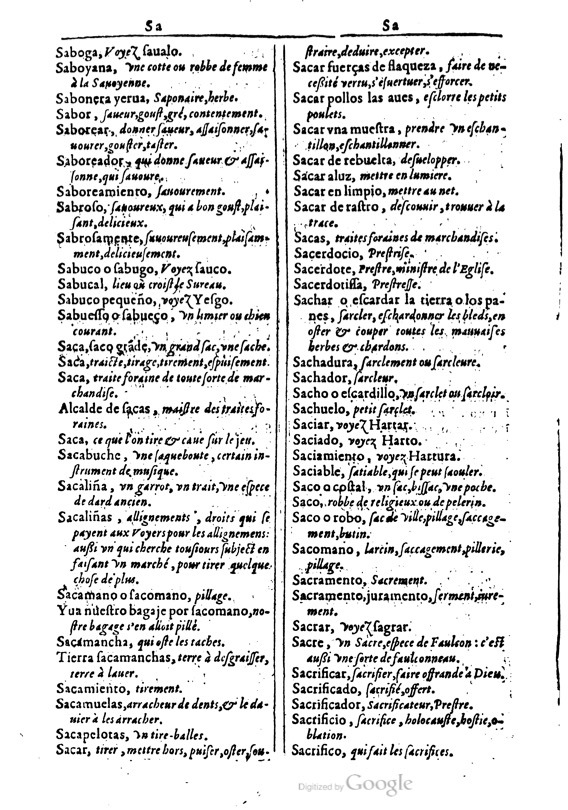 Sa
Saboga, Voyez saualo.
Saboyana, vne cotte ou robbe de femme
à la Sauoyenne.
Sabonera yerua, Saponaire, herbe.
Sabor, saueur, goust, gré, contentement.
Saborear, donner saueur, assaisonner, sa-
uourer, gouster, taster.
Saboreador, qui donne saueur & assai-
sonne, qui sauoure.
Saboreamiento, sauourement.
Sabroso, sauoureux, qui a bon goust, plai-
sant, delicieux.
Sabrosamente, sauoureusement, plaisam-
ment, delicieusement.
Sabuco o sabugo, Voyez sauco.
Sabucal, lieu où croist le Sureau.
Sabuco pequeño, voyez Yesgo.
Sabuesso o sabueço, vn limier ou chien
courant.
Saca, saco grãde, vn grand sac, vne sache.
Saca, traicte, tirage, tirement, espuisement.
Saca, traite foraine de toute sorte de mar-
chandise.
Alcalde de sacas, maistre des traites fo-
raines.
Saca, ce que l'on tire & caue sur le jeu.
Sacabuche, vne saqueboute, certain in-
strument de musique.
Sacaliña, vn garrot, vn trait, vne espece
de dard ancien.
Sacaliñas, allignements, droits qui se
payent aux Voyers pour les allignemens:
aussi vn qui cherche tousiours subject en
faisant vn marché, pour tirer quelque
chose de plus.
Sacamano o sacomano, pillage.
Yua nuestro bagaje por sacomano, no-
stre bagage s'en alloit pillé.
Sacamancha, qui oste les taches.
Tierra sacamanchas, terre à desgraisser,
terre à lauer.
Sacamiento, tirement.
Sacamuelas, arracheur de dents, & le da-
uier à les arracher.
Sacapelotas, vn tire-balles.
Sacar, tirer, mettre hors, puiser, oster, sou-
Sa
straire, deduire, excepter.
Sacar fuerças de flaqueza, faire de ne-
cessité vertu, s'esuertuer, s'efforcer.
Sacar pollos las aues, esclorre les petits
poulets.
Sacar vna muestra, prendre vn eschan-
tillon, eschantillonner.
Sacar de rebuelta, desuelopper.
Sacar a luz, mettre en lumiere.
Sacar en limpio, mettre au net.
Sacar de rastro, descouuir, trouuer à la
trace.
Sacas, traites foraines de marchandises.
Sacerdocio, Prestrise.
Sacerdote, Prestre, ministre de l'Eglise.
Sacerdotissa, Prestresse.
Sachar o escardar la tierra o los pa-
nes, sarcler, eschardonner les bleds, en
oster & couper toutes les mauuaises
herbes & chardons.
Sachadura, sarclement ou sarcleure.
Sachador, sarcleur.
Sacho o escardillo, vn sarclet ou sarcloir.
Sachuelo, petit sarclet.
Saciar, voyez Hartar.
Saciado, voyez Harto.
Saciamiento, voyez Hartura.
Saciable, satiable, qui se peut saouler.
Saco o costal, vn sac, bissac, vne poche.
Saco, robbe de religieux ou de pelerin.
Saco o robo, sac de ville, pillage, saccage-
ment, butin.
Sacomano, larcin, saccagement, pillerie,
pillage.
Sacramento, Sacrement.
Sacramento, juramento, serment, jure-
ment.
Sacrar, voyez sagrar.
Sacre, vn Sacre, espece de Faulcon: c'est
aussi vne sorte de faulconneau.
Sacrificar, sacrifier, faire offrande à Dieu.
Sacrificado, sacrifié, offert.
Sacrificador, Sacrificateur, Prestre.
Sacrificio, sacrifice, holocauste, hostie, o-
blation.
Sacrifico, qui fait les sacrifices.
Digitized by Google